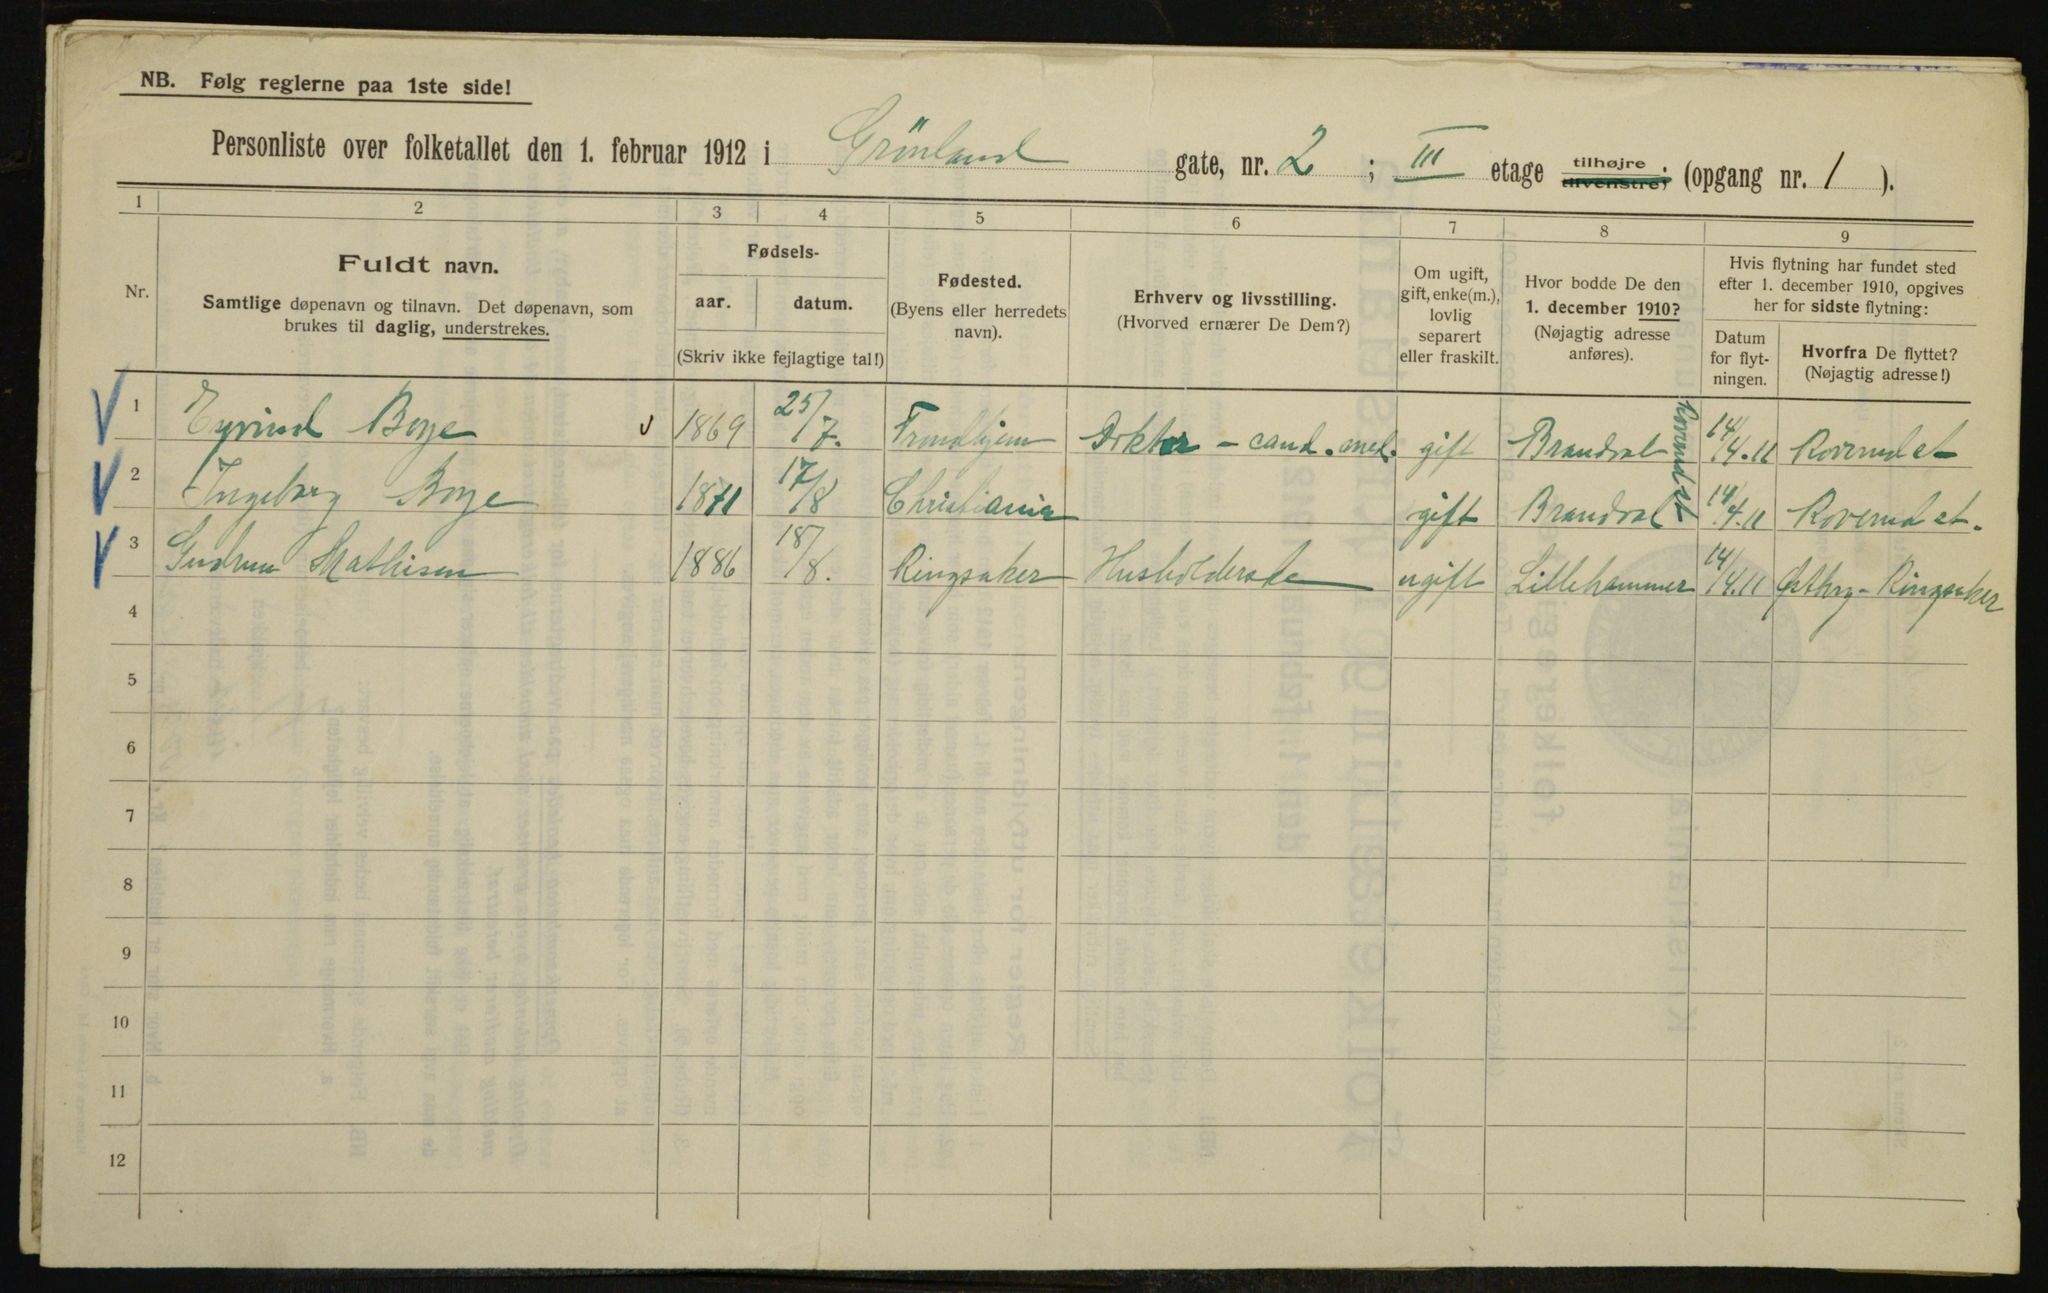 NB. Følg reglerne paa 1ste side!
Personliste over folketallet den 1. februar 1912 i Grönland gate, nr. 2 ; III etage tilhøjre tilvenstre; (opgang nr. 1 ).
1 2 3 4 5 6 7 8 9
Nr.
Fuldt navn.
Samtlige døpenavn og tilnavn. Det døpenavn, som
brukes til daglig, understrekes.
Fødsels-
aar. datum.
(Skriv ikke fejlagtige tal!)
Fødested.
(Byens eller herredets
navn).
Erhverv og livsstilling.
(Hvorved ernærer De Dem?)
Om ugift,
gift, enke(m.),
lovlig
separert
eller fraskilt.
Hvor bodde De den
1. december 1910?
(Nøjagtig adresse
anføres).
Hvis flytning har fundet sted
efter 1. december 1910, opgives
her for sidste flytning:
Datum
for flyt-
ningen.
Hvorfra De flyttet?
(Nøjagtig adresse!)
1 Eyvind Boye 1869 25/7. Trondhjem Doktor – cand. med. gift Brandval 14/4.11 Roverudet
2 Ingeborg Boye 1871 17/8 Christiania gift Brandval 14/4.11 Roverudet.
Roverudet
3 Gudrun Mathisen 1886 18/8. Ringsaker Husholderske ugift Lillehammer 14/4.11 Østby – Ringsaker
4
5
6
7
8
9
10
11
12